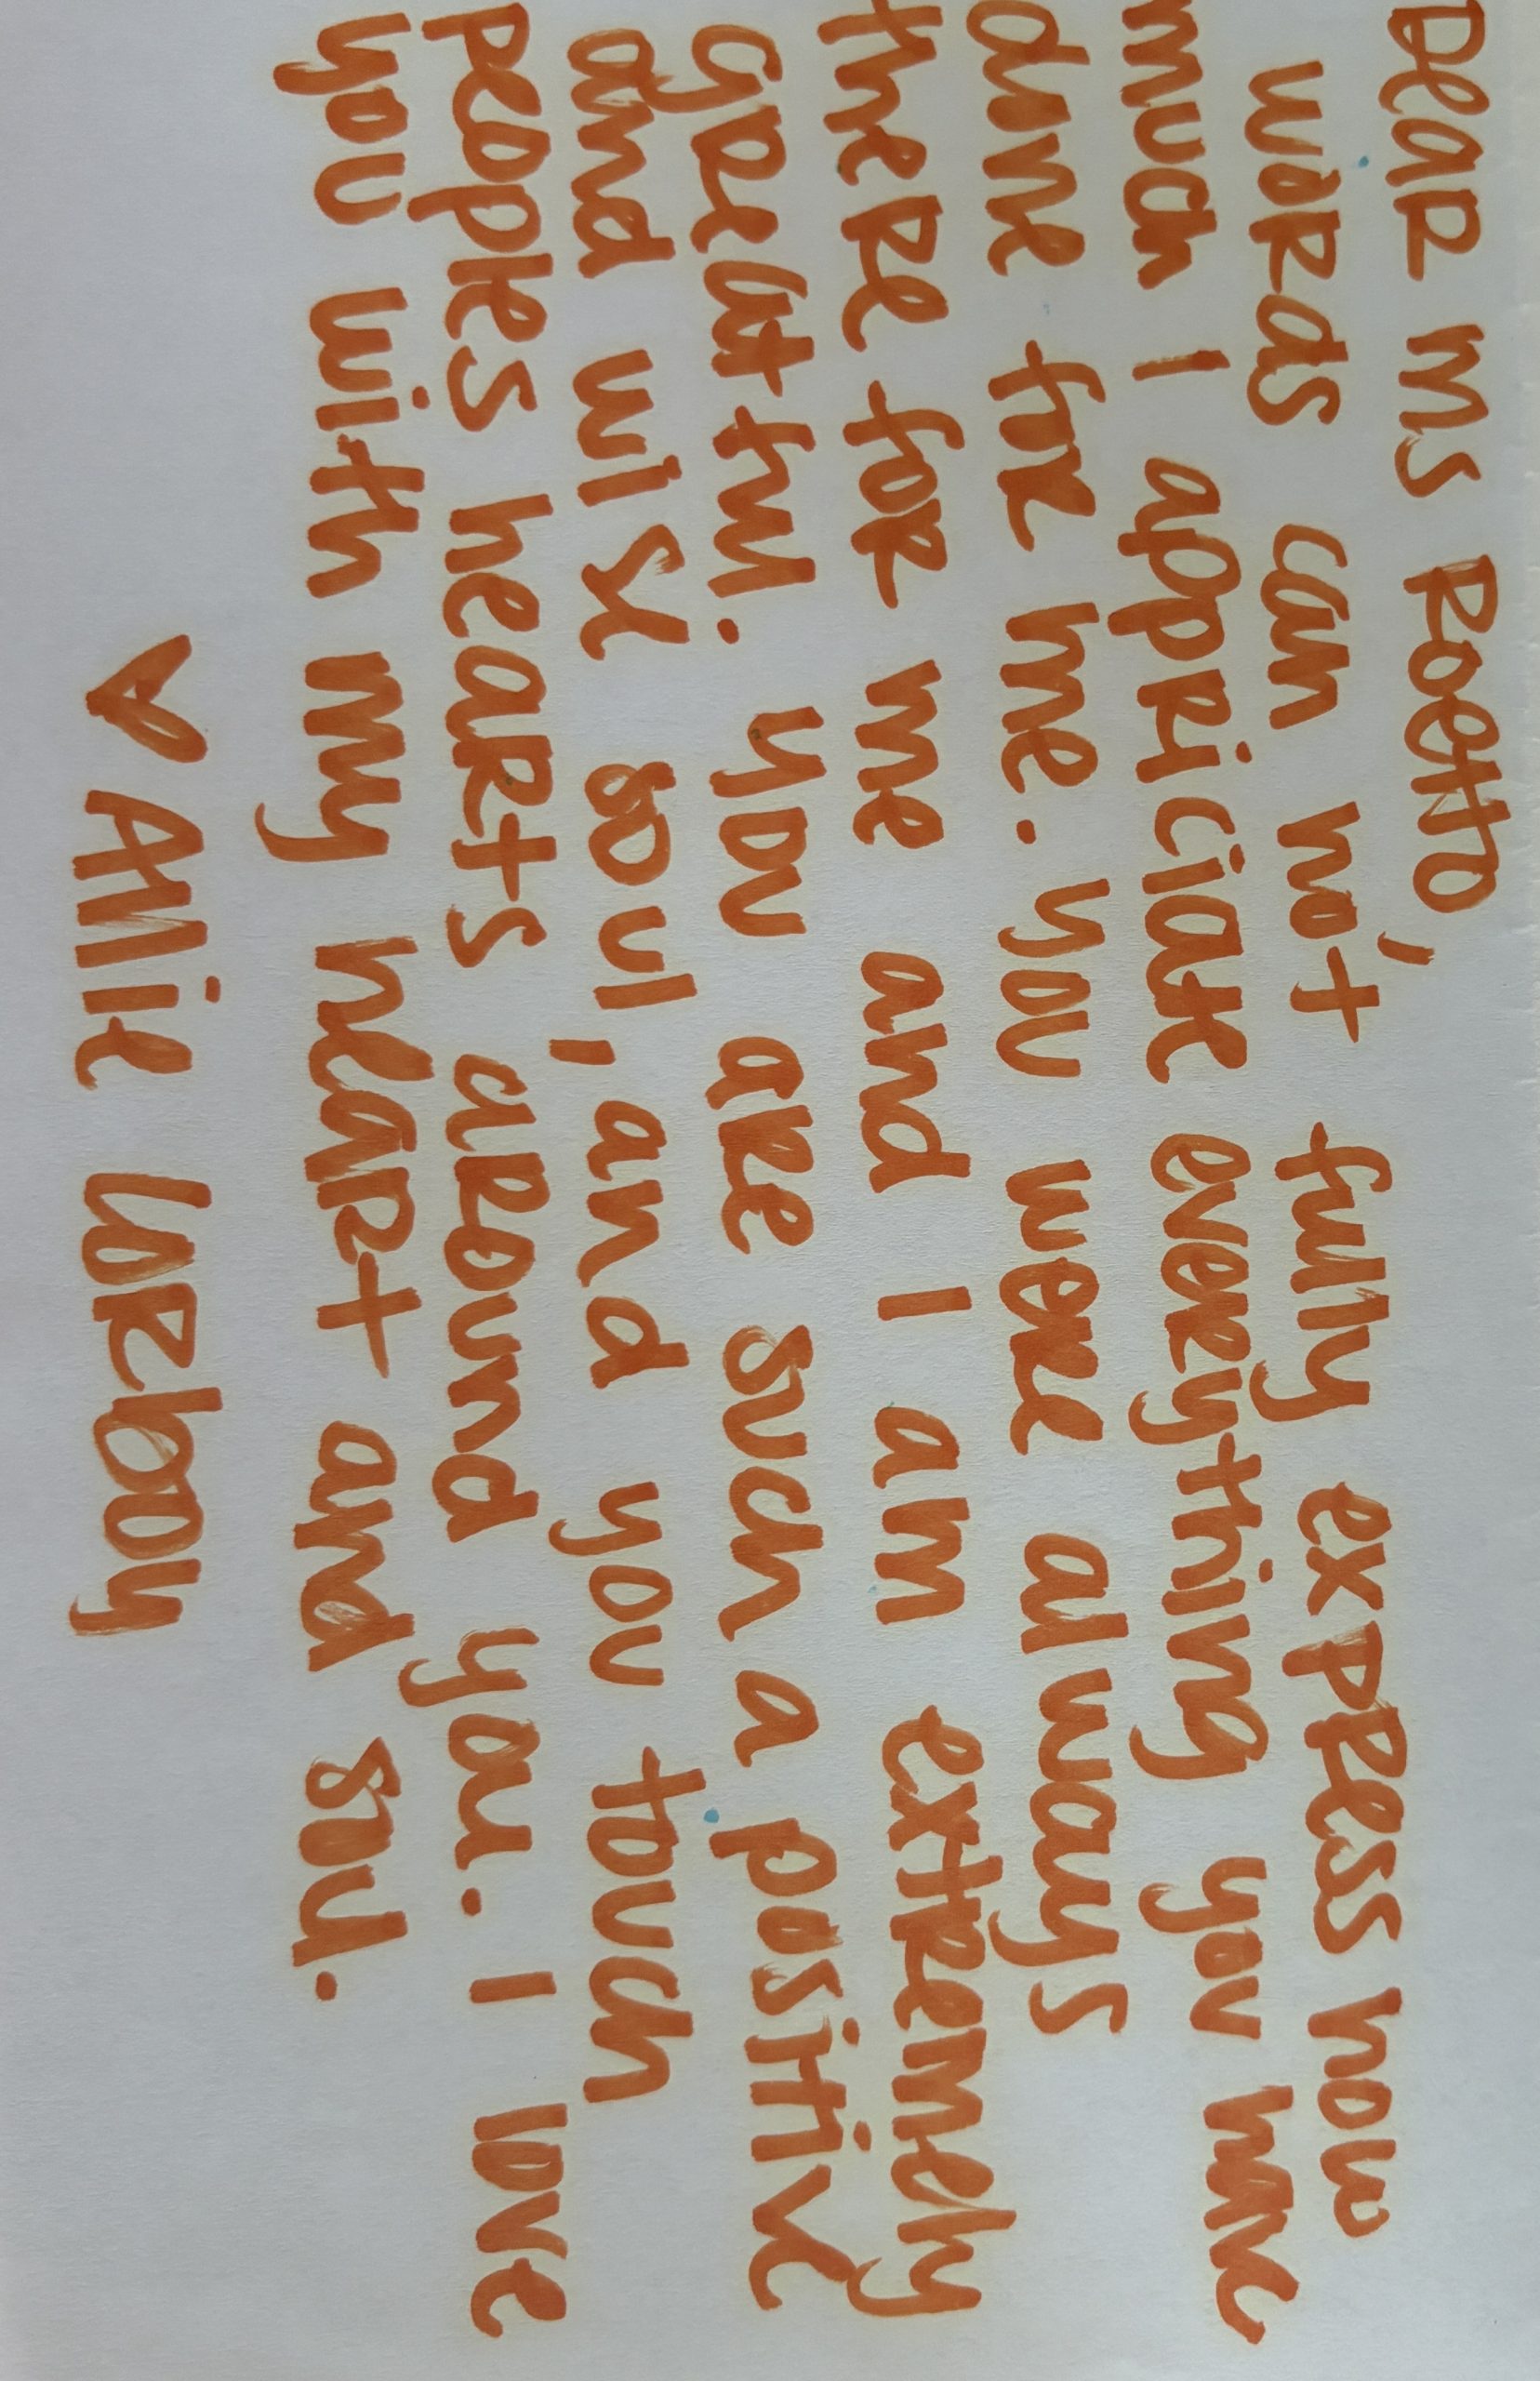 Dear Ms Roetto,
words can not fully express how
much I appriciate everything you have
done for me. you were always
there for me and I am extremely
greatful. you are such a positive
and wise soul, and you touch
peoples hearts around you. I love
you with my heart and soul.
♥ Allie Corbody